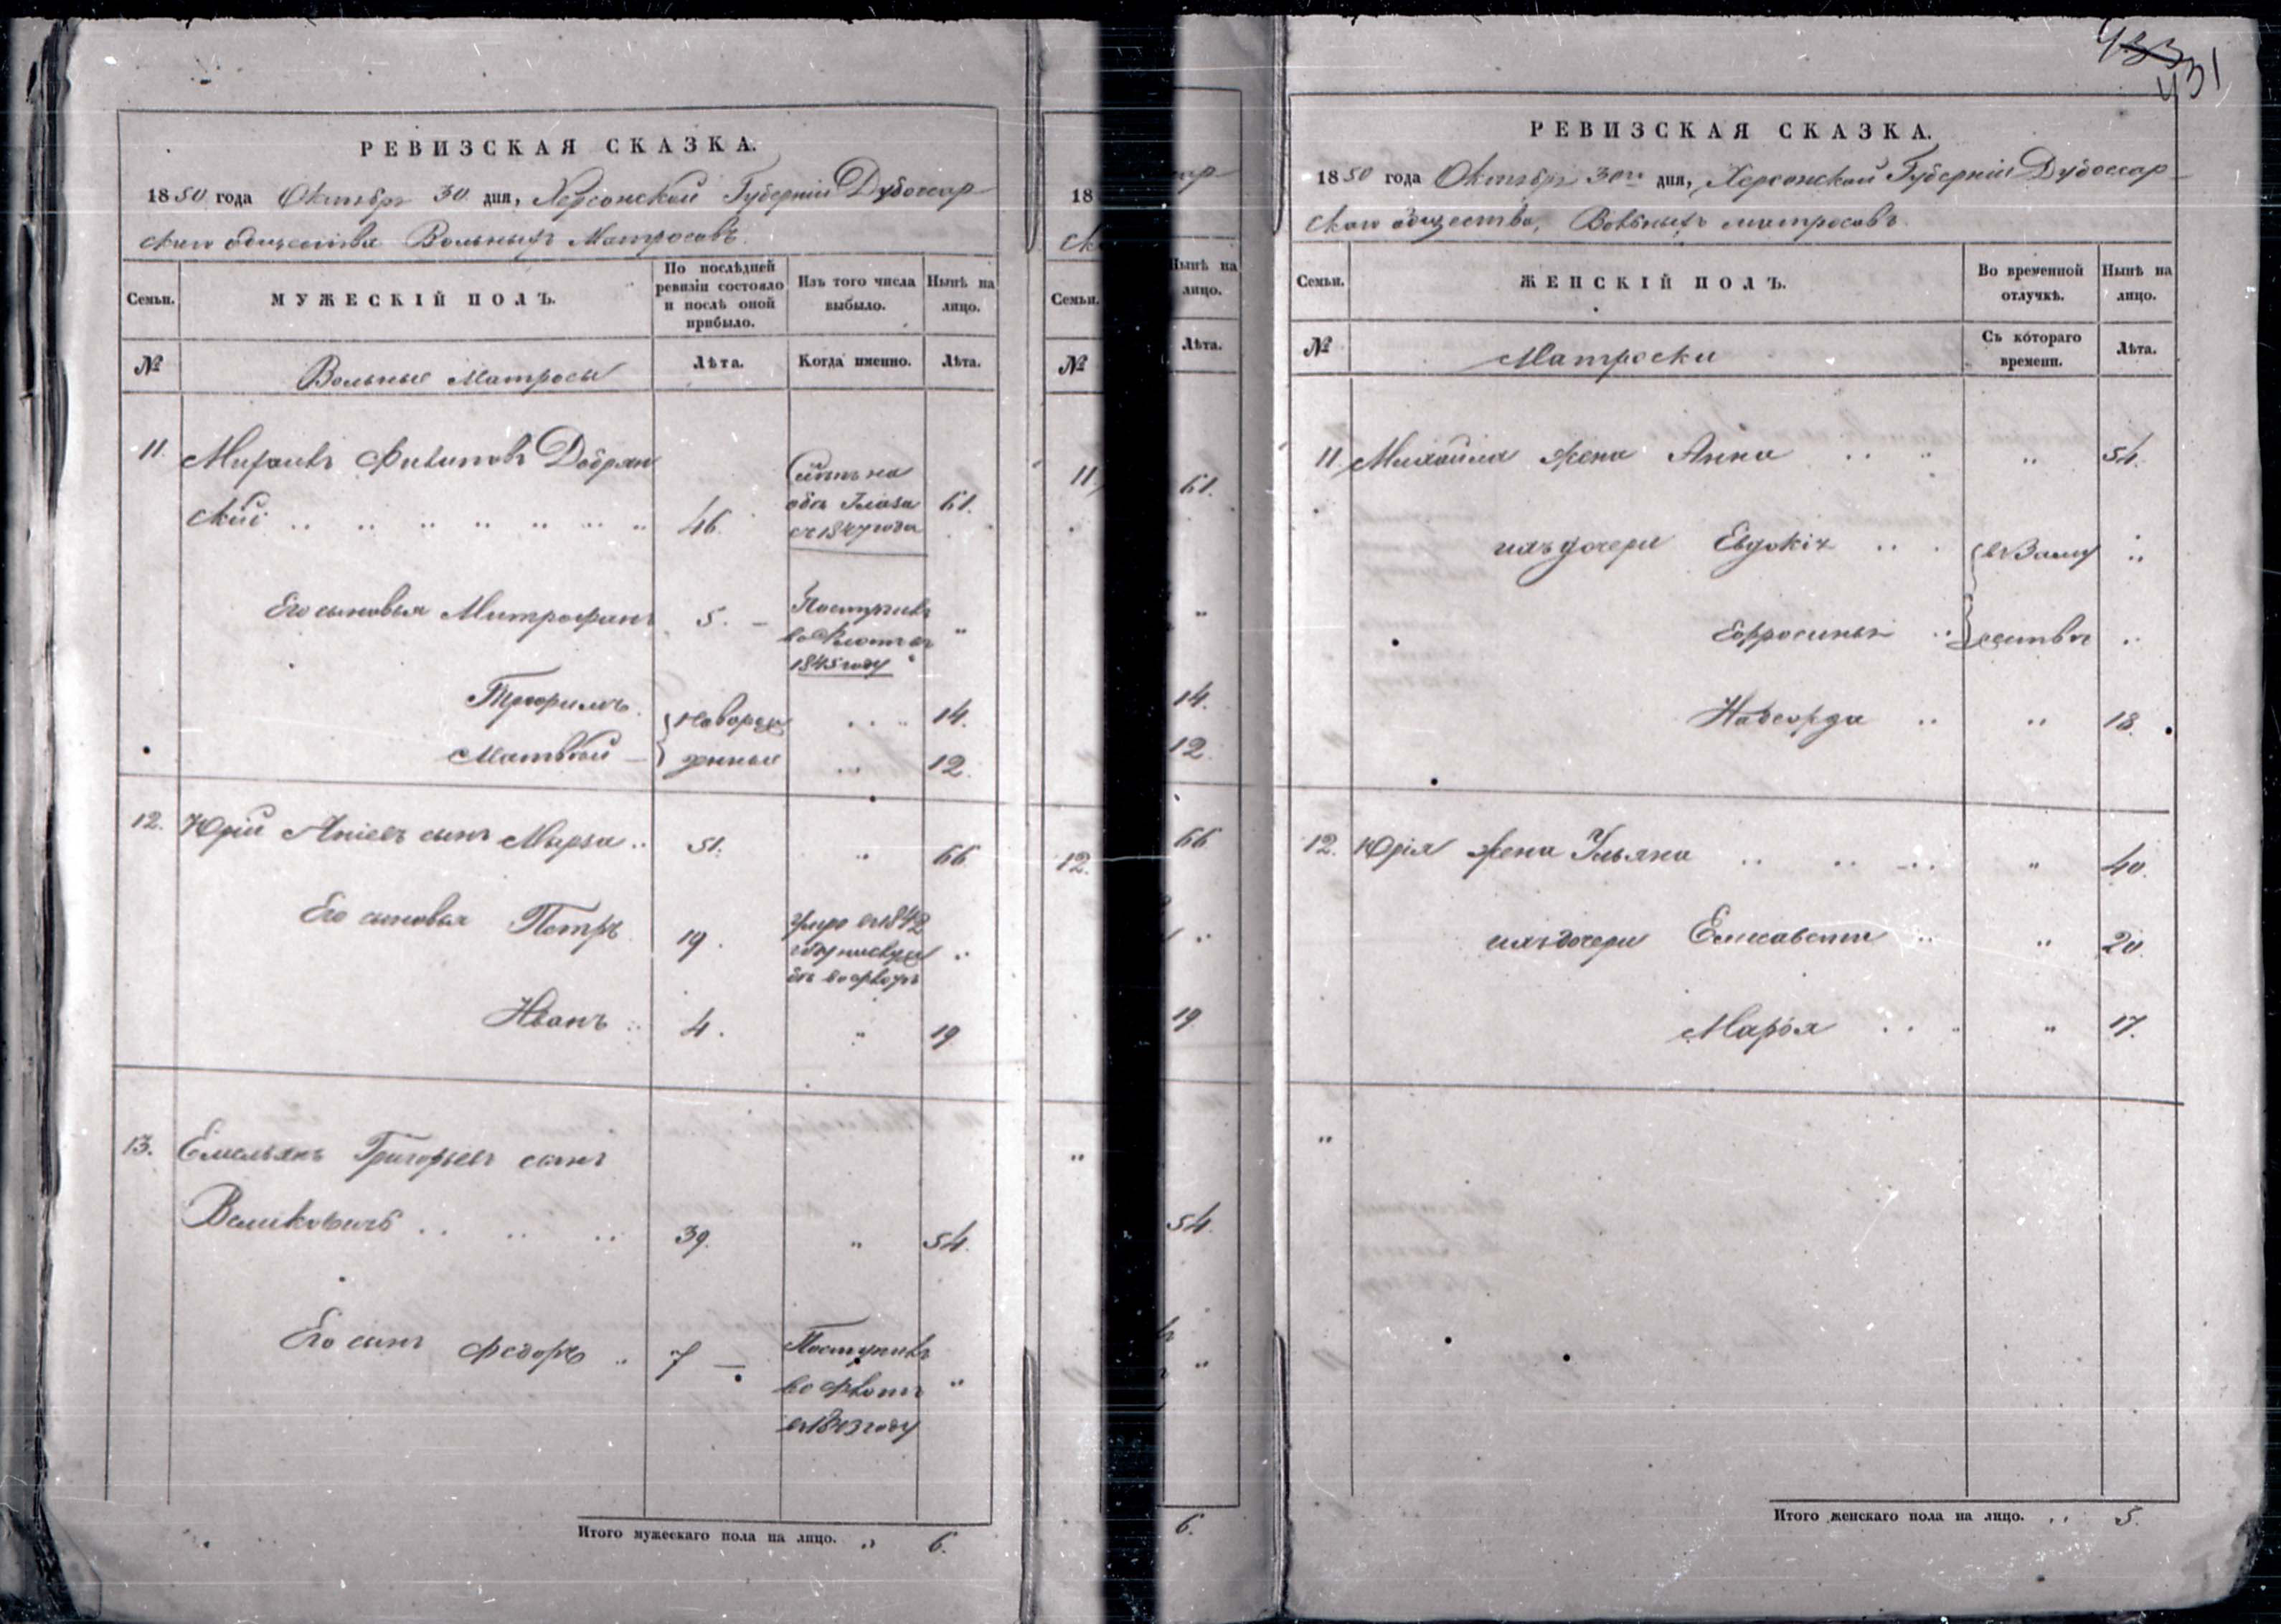 РЕВИЗСКАЯ СКАЗКА.
1850 года Октября 30 дня, Херсонской Губерніи Дубоссар
скаго общества Вольныхъ Матросовъ.
Семьи.
МУЖЕСКІЙ ПОЛЪ.
По послѣдней
ревизіи состояло
и послѣ оной
прибыло.
Изъ того числа
выбыло.
Нынѣ на
лицо.
№
Вольные Матросы
Лѣта.
Когда именно.
Лѣта.
11. Михаилъ Филиповъ Добрян
скій 46. на
оба Глаза 61.
съ 1847 года
Его сыновья Митрофанъ 5. Поступилъ
во Флотъ въ "
1845 году
Трофимъ { новорож 14.
Матвѣй } денные 12.
12. Юрій сынъ Мырза 51. " 66.
Его сыновья Петръ 19. въ 1842 "
Иванъ 4. " 19
13. Емельянъ Григорьевъ сынъ
Великовичъ 39. " 54.
Его сынъ Федоръ 7 Поступилъ
во Флотъ "
въ 1843 году
Итого мужескаго пола на лицо. " 6.
18
ск
Семьи.
№
11
12.
"
ар
Нынѣ на
лицо.
Лѣта.
61.
"
14.
12
66
"
19
54.
"
6.
433
431
РЕВИЗСКАЯ СКАЗКА.
1850 года Октября 30го дня, Херсонской Губерніи Дубоссар
скаго общества, Вольныхъ матросовъ.
Семьи.
ЖЕНСКІЙ ПОЛЪ.
Во временной
отлучкѣ.
Нынѣ на
лицо.
№
Матроски
Съ котораго
времени.
Лѣта.
11. Михаила жена Анна " 54.
ихъ дочери Евдокія { въ Заму "
Ефросинья } жествѣ "
Надежда " 18.
12. Юрія жена Ульяна " 40.
ихъ дочери Елисавета " 20.
Марія " 17.
"
Итого женскаго пола на лицо. " 5.